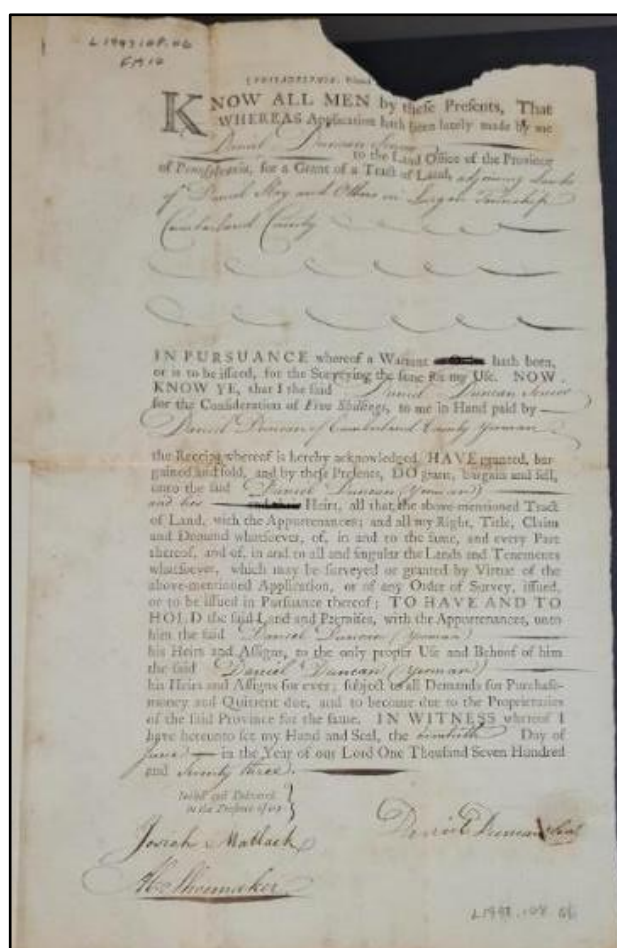 L1998.108.06
(PHILADELPHIA: Printed
KNOW ALL MEN by these Presents, That
WHEREAS Application hath been lately made by me
Daniel Duncan Senior
to the Land Office of the Province
of Pennsylvania, for a Grant of a Tract of Land, adjoining Lands
of Daniel and Others in Lurgan Township
Cumberland County
IN PURSUANCE whereof a Warrant hath been,
or is to be issued, for the Surveying the same for my Use. NOW
KNOW YE, that I the said Daniel Duncan Senior
for the Consideration of Five Shillings, to me in Hand paid by
Daniel Duncan of Cumberland County Yeoman
the Receipt whereof is hereby acknowledged, HAVE granted, bar-
gained and sold, and by these Presents, DO grant, bargain and sell,
unto the said Daniel Duncan (Yeoman)
and his Heirs, all that the above-mentioned Tract
of Land, with the Appurtenances; and all my Right, Title, Claim
and Demand whatsoever, of, in and to the same, and every Part
thereof, and of, in and to all and singular the Lands and Tenements
whatsoever, which may be surveyed or granted by Virtue of the
above-mentioned Application, or of any Order of Survey, issued,
or to be issued in Pursuance thereof; TO HAVE AND TO
HOLD the said Land and Premises, with the Appurtenances, unto
him the said Daniel Duncan (Yeoman)
his Heirs and Assigns, to the only proper Use and Behoof of him
the said Daniel Duncan (Yeoman)
his Heirs and Assigns for ever; subject to all Demands for Purchase-
money and Quitrent due, and to become due to the Proprietaries
of the said Province for the same. IN WITNESS whereof I
have hereunto set my Hand and Seal, the Day of
June in the Year of our Lord One Thousand Seven Hundred
and Seventy three.
Sealed and Delivered
in the Presence of us
Josiah Matlack
Daniel Duncan Seal
Shoemaker
L1998.108.06